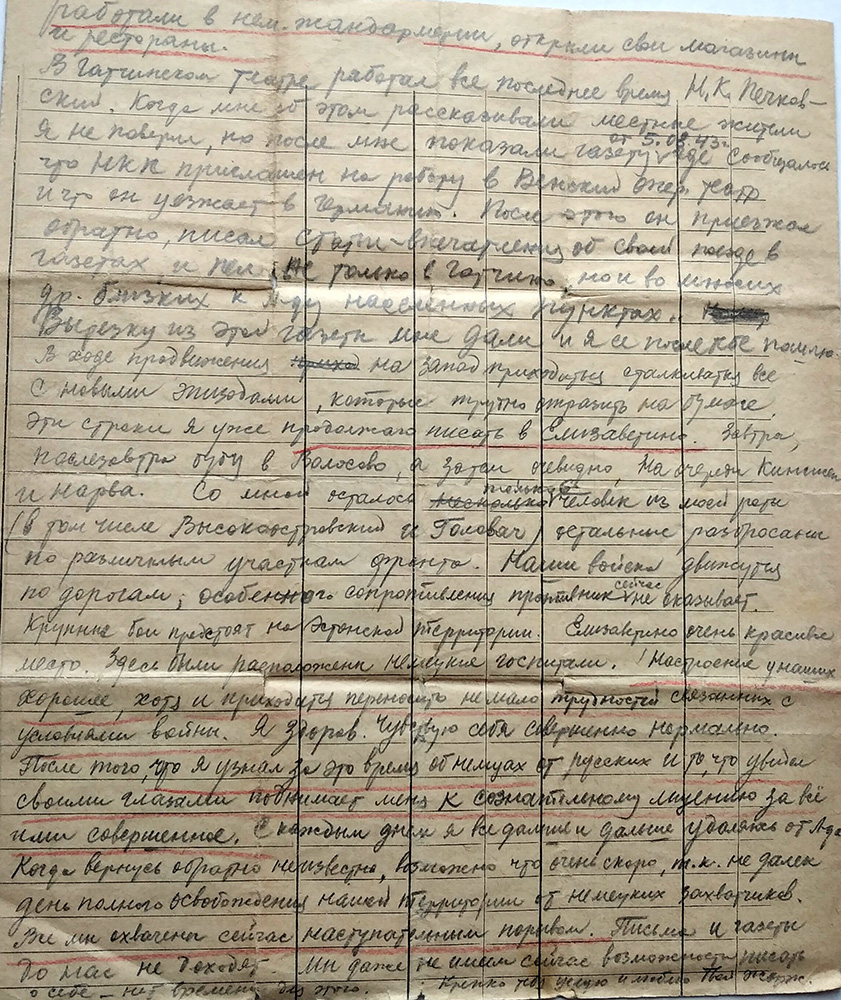 работали в нем. жандармении, открыли свои магазины
и рестораны.
В Гатчинском театре работал все последнее время Н.К. Печков-
ский. Когда мне об этом рассказывали местные жители
Я не поверил, но после мне показали газету от 5.03.43г. где сообщалось
что НКП приглашен на работу в Венский опер. театр
и что он уезжает в Германию. После этого он приезжал
обратно, писал статьи-впечатления об своей поезде в
газетах и пел не только в Гатчино, но и во многих
др. близких к Л-ду населенных пунктах.
Вырезку из этой газеты мне дали и я ее после тебе пошлю.
В ходе продвижения на запад приходиться сталкиваться все
с новыми эпизодами, которые трудно отразить на бумаге.
Эти строки я уже продолжаю писать в Елизаветино. Завтра,
послезавтра буду в Волосово, а затем очевидно, на очереди Кингисеп
и Нарва. Со мной осталось только человек из моей роты
(в том числе Высокоостровский и Головач) остальные разбросаны
по различным участкам фронта. Наши войска движутся
по дорогам, особенного сопротивления противник сейчас не оказывает.
Крупные бои предстоят на Эстонской территории. Елизаветино очень красивое
место. Здесь были расположены немецкие госпитали. Настроение у наших
хорошее, хотя и приходится переносить немало трудностей связанных с
условиями войны. Я здоров. Чувствую себя совершенно нормально.
После того, что я узнал за это время об немцах от русских и то, что увидел
своими глазами поднимает меня к сознательному мщению за всё
ими совершенное. С каждым днем я все дальше и дальше удаляюсь от Л-да
Когда вернусь обратно неизвестно, возможно что очень скоро, т.к. не далек
день полного освобождения нашей территории от немецких захватчиков.
Все мы охвачены сейчас наступательным порывом. Письма и газеты
до нас не доходят. Мы даже не имеем сейчас возможности писать
о себе - нет времени для этого. Крепко тебя целую и люблю Твой